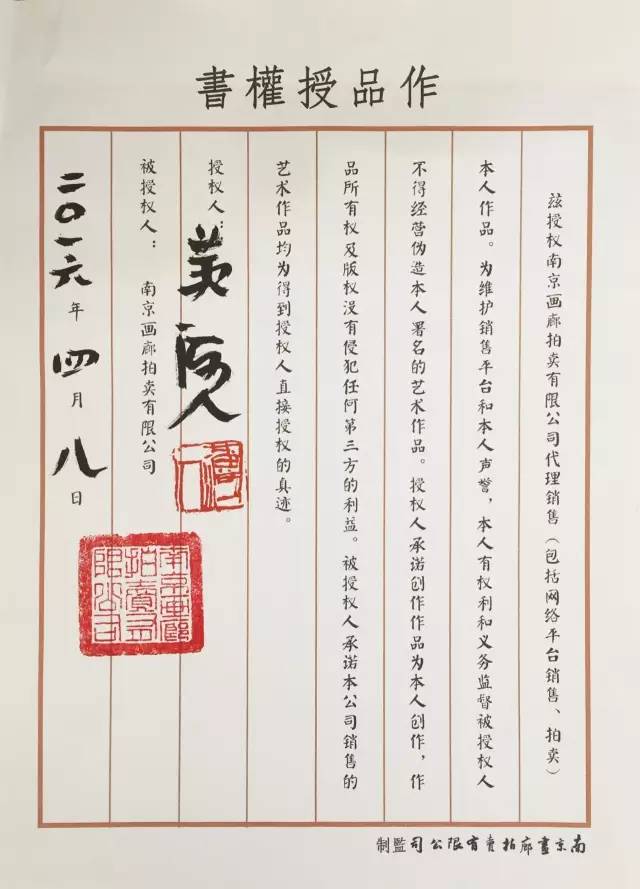 作品授權書
兹授权南京画廊拍卖有限公司代理销售（包括网络平台销售、拍卖）
本人作品。为维护销售平台和本人声誉，本人有权利和义务监督被授权人
不得经营伪造本人署名的艺术作品。授权人承诺创作作品为本人创作，作
品所有权及版权没有侵犯任阿第三方的利益。被授权人承诺本公司销售的
艺术作品均为得到授权人直接授权的真迹。
授权人：
被授权人： 南京画廊拍卖有限公司
二〇一六年四月八日
南京畫廊
拍賣有
限公司
南京畫廊拍賣有限公司監制